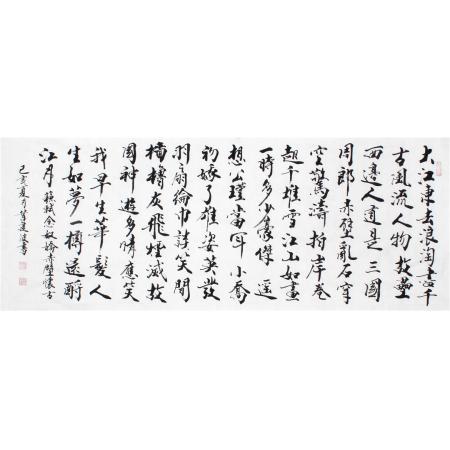 大江東去浪淘盡千
古風流人物故壘
西邊人道是三國
周郎赤壁亂石穿
空驚濤拍岸卷
起千堆雪江山如畫
一時多少豪傑遥
想公瑾當年小喬
初嫁了雄姿英發
羽扇綸巾談笑間
檣櫓灰飛煙滅故
國神遊多情應笑
我早生華髮人
生如夢一樽還酹
江月 蘇軾念奴嬌赤壁懷古
己亥夏月建波書